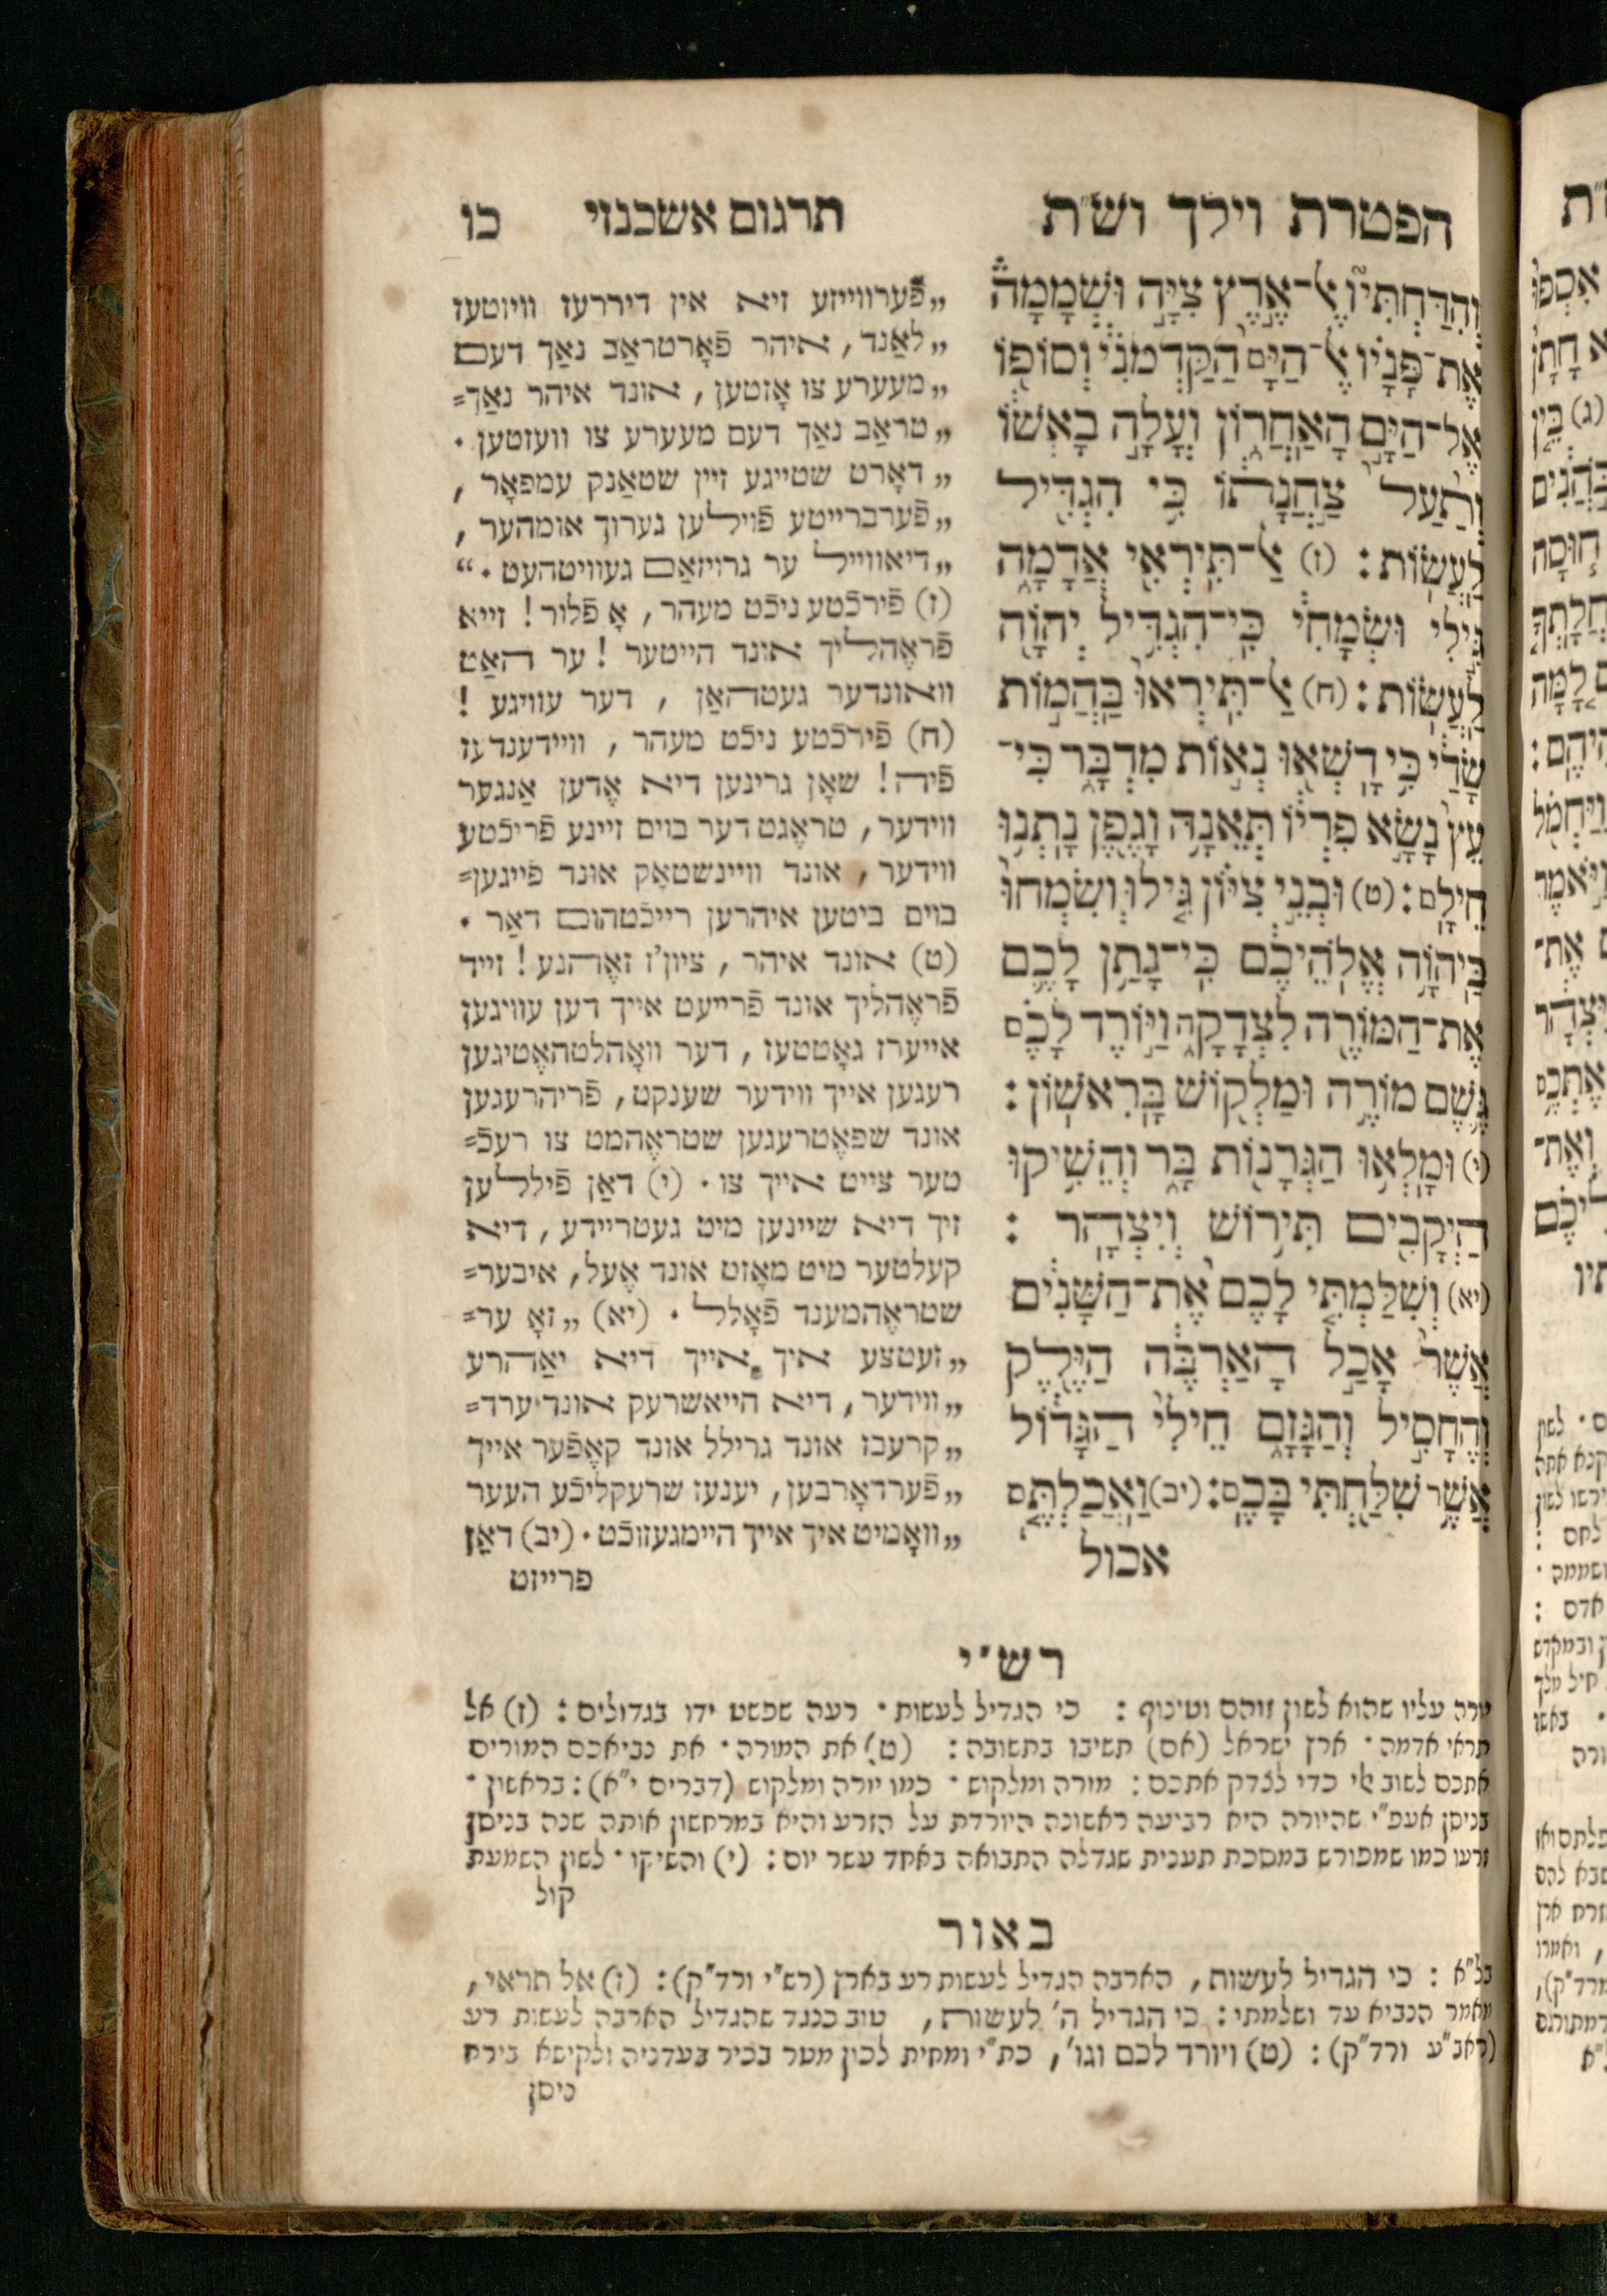 הפטרת וילך וש״ת
תרגום אשכנזי
כו
וְהִדַּחְתִּיו אֶל־אֶרֶץ צִיָּה וּשְׁמָמָה
אֶת־פָּנָיו אֶל־הַיָּם הַקַּדְמֹנִי וְסוֹפוֹ
אֶל־הַיָּם הָאַחֲרוֹן וְעָלָה בָאְשׁוֹ
וְתַעַל צַחֲנָתוֹ כִּי הִגְדִּיל
לַעֲשׂוֹת : (ז) אַל־תִּירְאִי אֲדָמָה
גִּילִי וּשְׂמָחִי כִּי־הִגְדִּיל יְהוָה
לַעֲשׂוֹת : (ח) אַל־תִּירְאוּ בַּהֲמוֹת
שָׂדַי כִּי דָשְׁאוּ נְאוֹת מִדְבָּר כִּי־
עֵץ נָשָׂא פִרְיוֹ תְּאֵנָה וָגֶפֶן נָתְנוּ
חֵילָם : (ט) וּבְנֵי צִיּוֹן גִּילוּ וְשִׂמְחוּ
בַּיהוָה אֱלֹהֵיכֶם כִּי־נָתַן לָכֶם
אֶת־הַמּוֹרֶה לִצְדָקָה וַיּוֹרֶד לָכֶם
גֶּשֶׁם מוֹרֶה וּמַלְקוֹשׁ בָּרִאשׁוֹן :
(י) וּמָלְאוּ הַגֳּרָנוֹת בָּר וְהֵשִׁיקוּ
הַיְקָבִים תִּירוֹשׁ וְיִצְהָר :
(יא) וְשִׁלַּמְתִּי לָכֶם אֶת־הַשָּׁנִים
אֲשֶׁר אָכַל הָאַרְבֶּה הַיֶּלֶק
וְהֶחָסִיל וְהַגָּזָם חֵילִי הַגָּדוֹל
אֲשֶׁר שִׁלַּחְתִּי בָּכֶם : (יב) וַאֲכַלְתֶּם
אכול
„פֿערווייזע זיא אין דיררעז וויוטעז
„לאַנד, איהר פֿאָרטראַב נאַך דעם
„מעערע צו אָזטען, אונד איהר נאַך=
„טראַב נאַך דעם מעערע צו וועזטען.
„דאָרט שטייגע זיין שטאַנק עמפאָר,
„פֿערברייטע פֿוילען גערוך אומהער,
„דיאווייל ער גרויזאַם געוויטהעט.“
(ז) פֿירכֿטע ניכֿט מעהר, אָ פֿלור! זייא
פֿראָהליך אונד הייטער! ער האַט
וואונדער געטהאַן, דער עוויגע!
(ח) פֿירכֿטע ניכֿט מעהר, וויידענדעז
פֿיה! שאָן גרינען דיא אָדען אַנגער
ווידער, טראָגט דער בוים זיינע פֿריכֿטע
ווידער, אונד וויינשטאָק אונד פֿייגען=
בוים ביטען איהרען רייכֿטהום דאַר.
(ט) אונד איהר, ציון'ז זאָהנע! זייד
פֿראָהליך אונד פֿרייעט אייך דען עוויגען
אייערז גאָטטעז, דער וואָהלטהאָטיגען
רעגען אייך ווידער שענקט, פֿריהרעגען
אונד שפאָטרעגען שטראָהמט צו רעכֿ=
טער צייט אייך צו. (י) דאַן פֿיללען
זיך דיא שיינען מיט געטריידע, דיא
קעלטער מיט מאָזט אונד אָעל, איבער=
שטראָהמענד פֿאָלל. (יא) „זאָ ער=
„זעטצע איך אייך דיא יאַהרע
„ווידער, דיא הייאשרעק אונד ערד=
„קרעבז אונד גרילל אונד קאָפֿער אייך
„פֿערדאָרבען, יענעז שרעקליכֿע העער
„וואָמיט איך אייך היימגעזוכֿט. (יב) דאַן
פרייזט
רש"י
סרה עליו שהוא לשון זוהם וטינוף : כי הגדיל לעשות. רעה שפשט ידו בגדולים : (ז) אל
תראי אדמה. ארץ ישראל (אם) תשיבו בתשובה : (ט) את המורה. את נביאכם המורים
אתכם לשוב אלי כדי לצדק אתכם : מורה ומלקוש. כמו יורה ומלקוש (דברים י"א) : בראשון.
בניסן אעפ"י שהיורה היא רביעה ראשונה היורדת על הזרע והיא במרחשון אותה שנה בניסן
זרעו כמו שמפורש במסכת תענית שגדלה התבואה באחד עשר יום : (י) והשיקו. לשון השמעת
קול
באור
בל"א : כי הגדיל לעשות, הארבה הגדיל לעשות רע בארץ (רש"י ורד"ק) : (ז) אל תראי,
מאמר הנביא עד ושלמתי : כי הגדיל ה' לעשות, טוב כנגד שהגדיל הארבה לעשות רע
(ראב"ע ורד"ק) : (ט) ויורד לכם וגו', כת"י ומחית לכון מטר בכיר בעדניה ולקישא בירח
ניסן